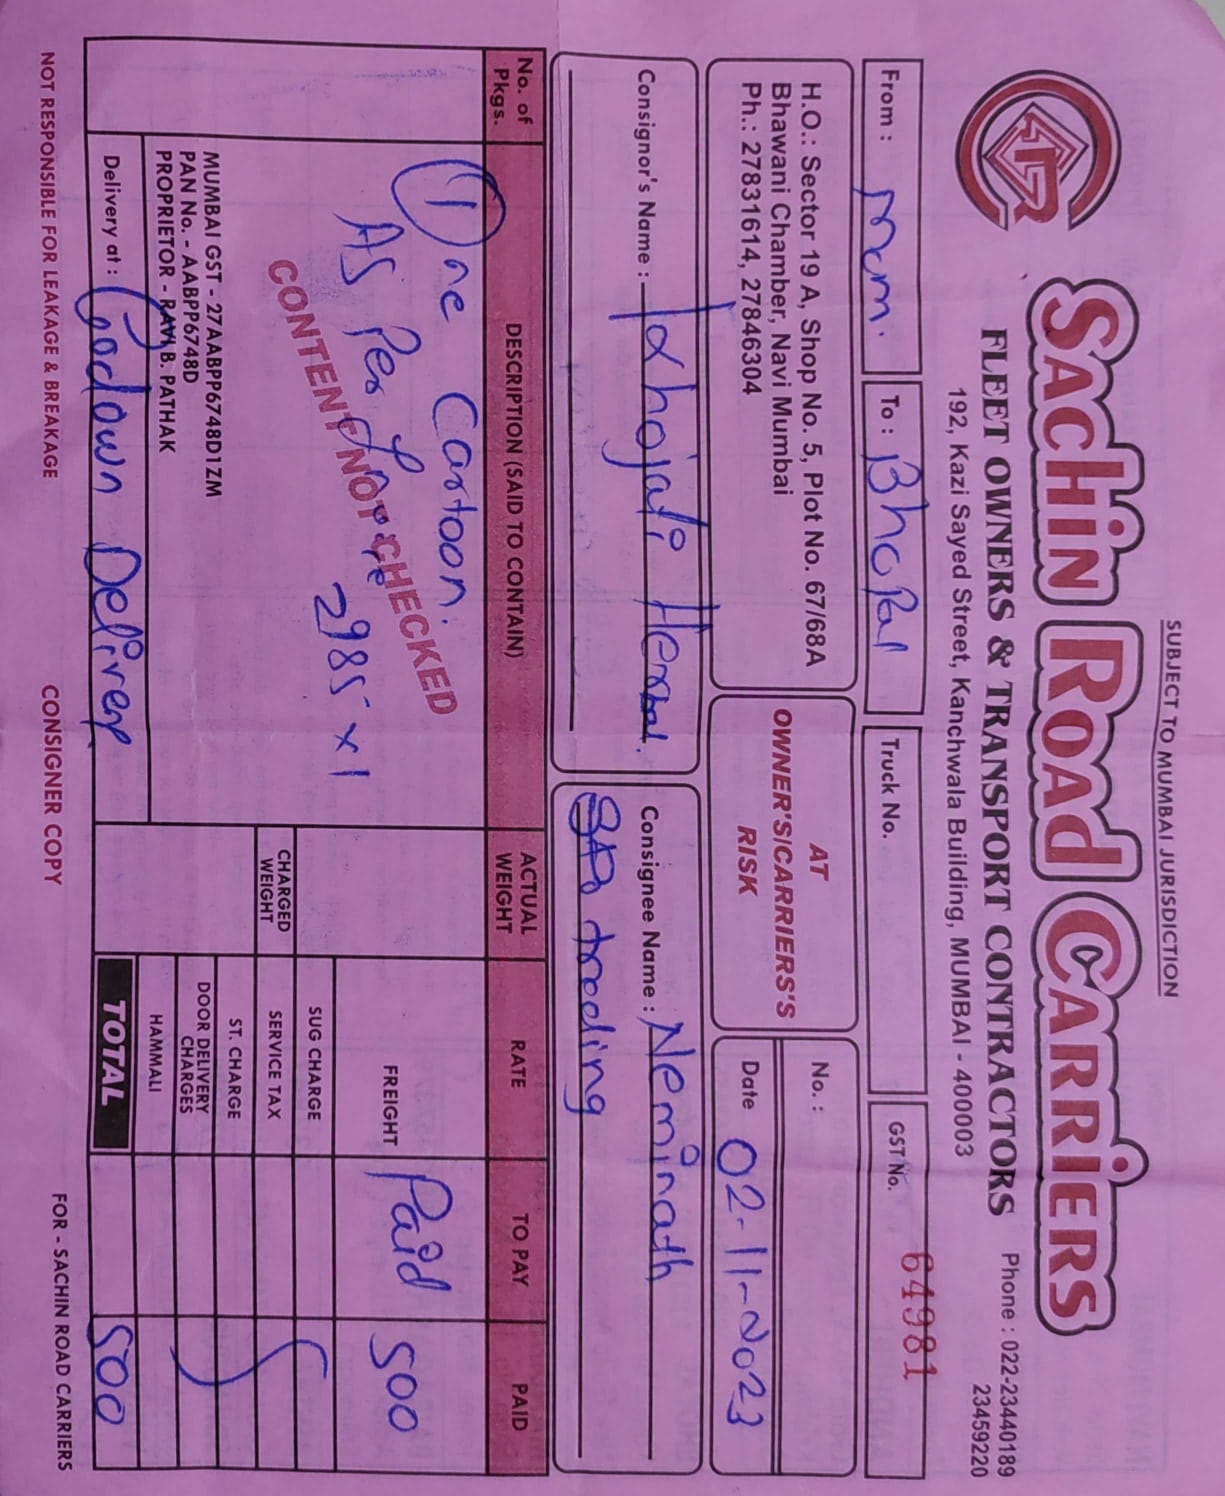 SUBJECT TO MUMBAI JURISDICTION
SACHIN ROAD CARRIERS
FLEET OWNERS & TRANSPORT CONTRACTORS
Phone : 022-23440189
23459220
192, Kazi Sayed Street, Kanchwala Building, MUMBAI - 400003
64981
From : Mum.
To : Bhopal
Truck No.
GST No.
H.O.: Sector 19 A, Shop No. 5, Plot No. 67/68A
Bhawani Chamber, Navi Mumbai
Ph.: 27831614, 27846304
AT
OWNER'S/CARRIERS'S
RISK
No. :
Date 02-11-2023
Consignor's Name : Khojati Herbal.
Consignee Name : Neminath
trading
No. of Pkgs.
DESCRIPTION (SAID TO CONTAIN)
ACTUAL WEIGHT
RATE
TO PAY
PAID
One Cartoon.
As Per
2985 x 1
CONTENT NOT CHECKED
FREIGHT Paid 500
SUG CHARGE
CHARGED WEIGHT
SERVICE TAX
ST. CHARGE
DOOR DELIVERY CHARGES
HAMMALI
TOTAL 500
MUMBAI GST - 27AABPP6748D1ZM
PAN No. - AABPP6748D
PROPRIETOR - RAVI B. PATHAK
Delivery at : Godown Delivery
NOT RESPONSIBLE FOR LEAKAGE & BREAKAGE
CONSIGNER COPY
FOR - SACHIN ROAD CARRIERS